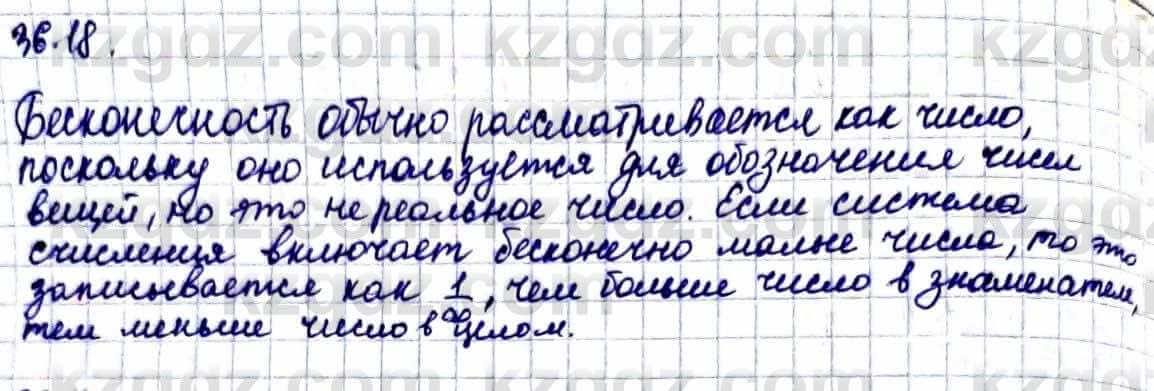 36.18.
Бесконечность обычно рассматривается как число,
поскольку оно используется для обозначения чисел
вещей, но это не реальное число. Если система
счисления включает бесконечно малые числа, то это
записывается как 1/∞, чем больше число в знаменателе,
тем меньше число в целом.